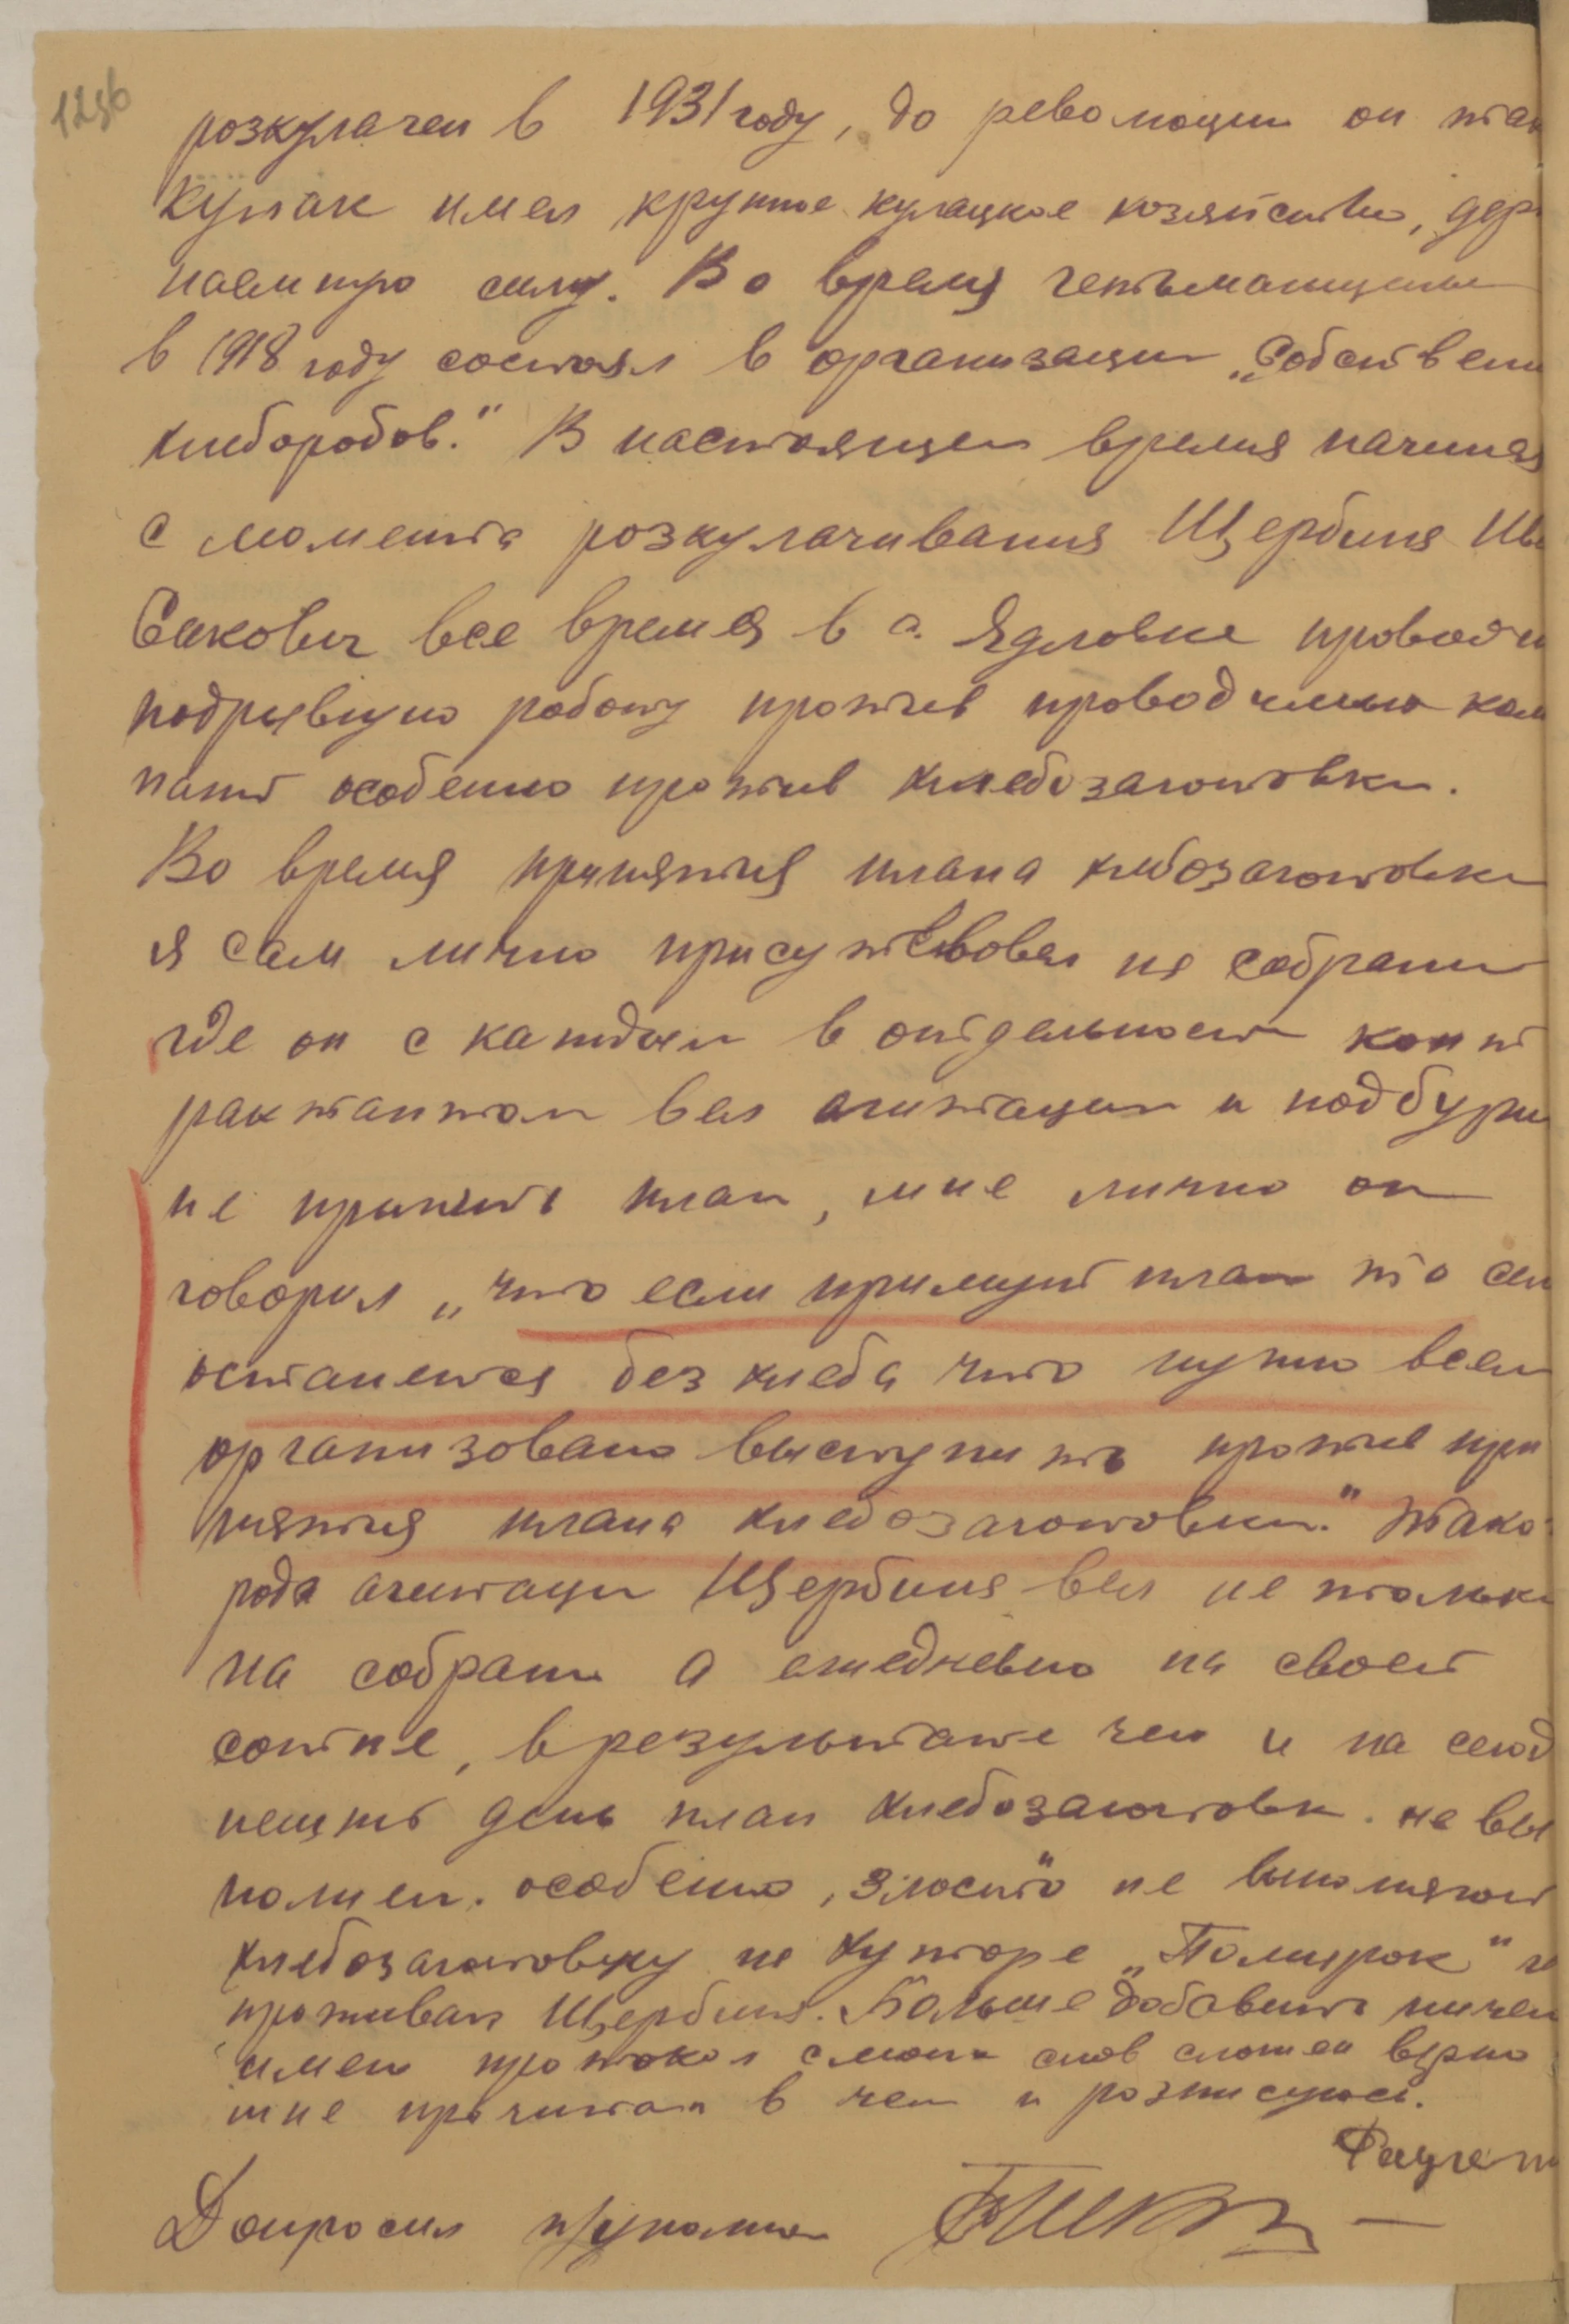 125б
розкулачен в 1931 году, до революции он так
кулак имел крупное кулацкое хозяйство, дер
наемную силу. Во время гетьманщины
в 1918 году состоял в организации „Собствен
хлеборобов." В настоящем время начиная
с момента розкулачивания Щербина Ив
Сакович все время в с. Ядловке проводи
подрывную работу против проводимых кам
паний особенно против хлебозаготовки.
Во время принятия плана хлебозаготовки
я сам лично присутствовал на собрании
где он с каждым в отдельности конт
рактантом вел агитации и подбури
не принять план, мне лично он
говорил „что если примут план то сами
останется без хлеба что нужно всем
организовано выступить против при
нятия плана хлебозаготовки." Тако
рода агитаци Щербина вел не только
на собрании а ежедневно на своей
сотне, в результате чего и на сегод
нешний день план хлебозаготовки не вы
полнен. особенно, злостно" не выполняют
хлебозаготовку на хуторе „Помирок" г
проживал Щербина. Больше добавить ничего
имею протокол с моих слов сложен верно
мне прочитан в чем и розписуюсь.
Допросил